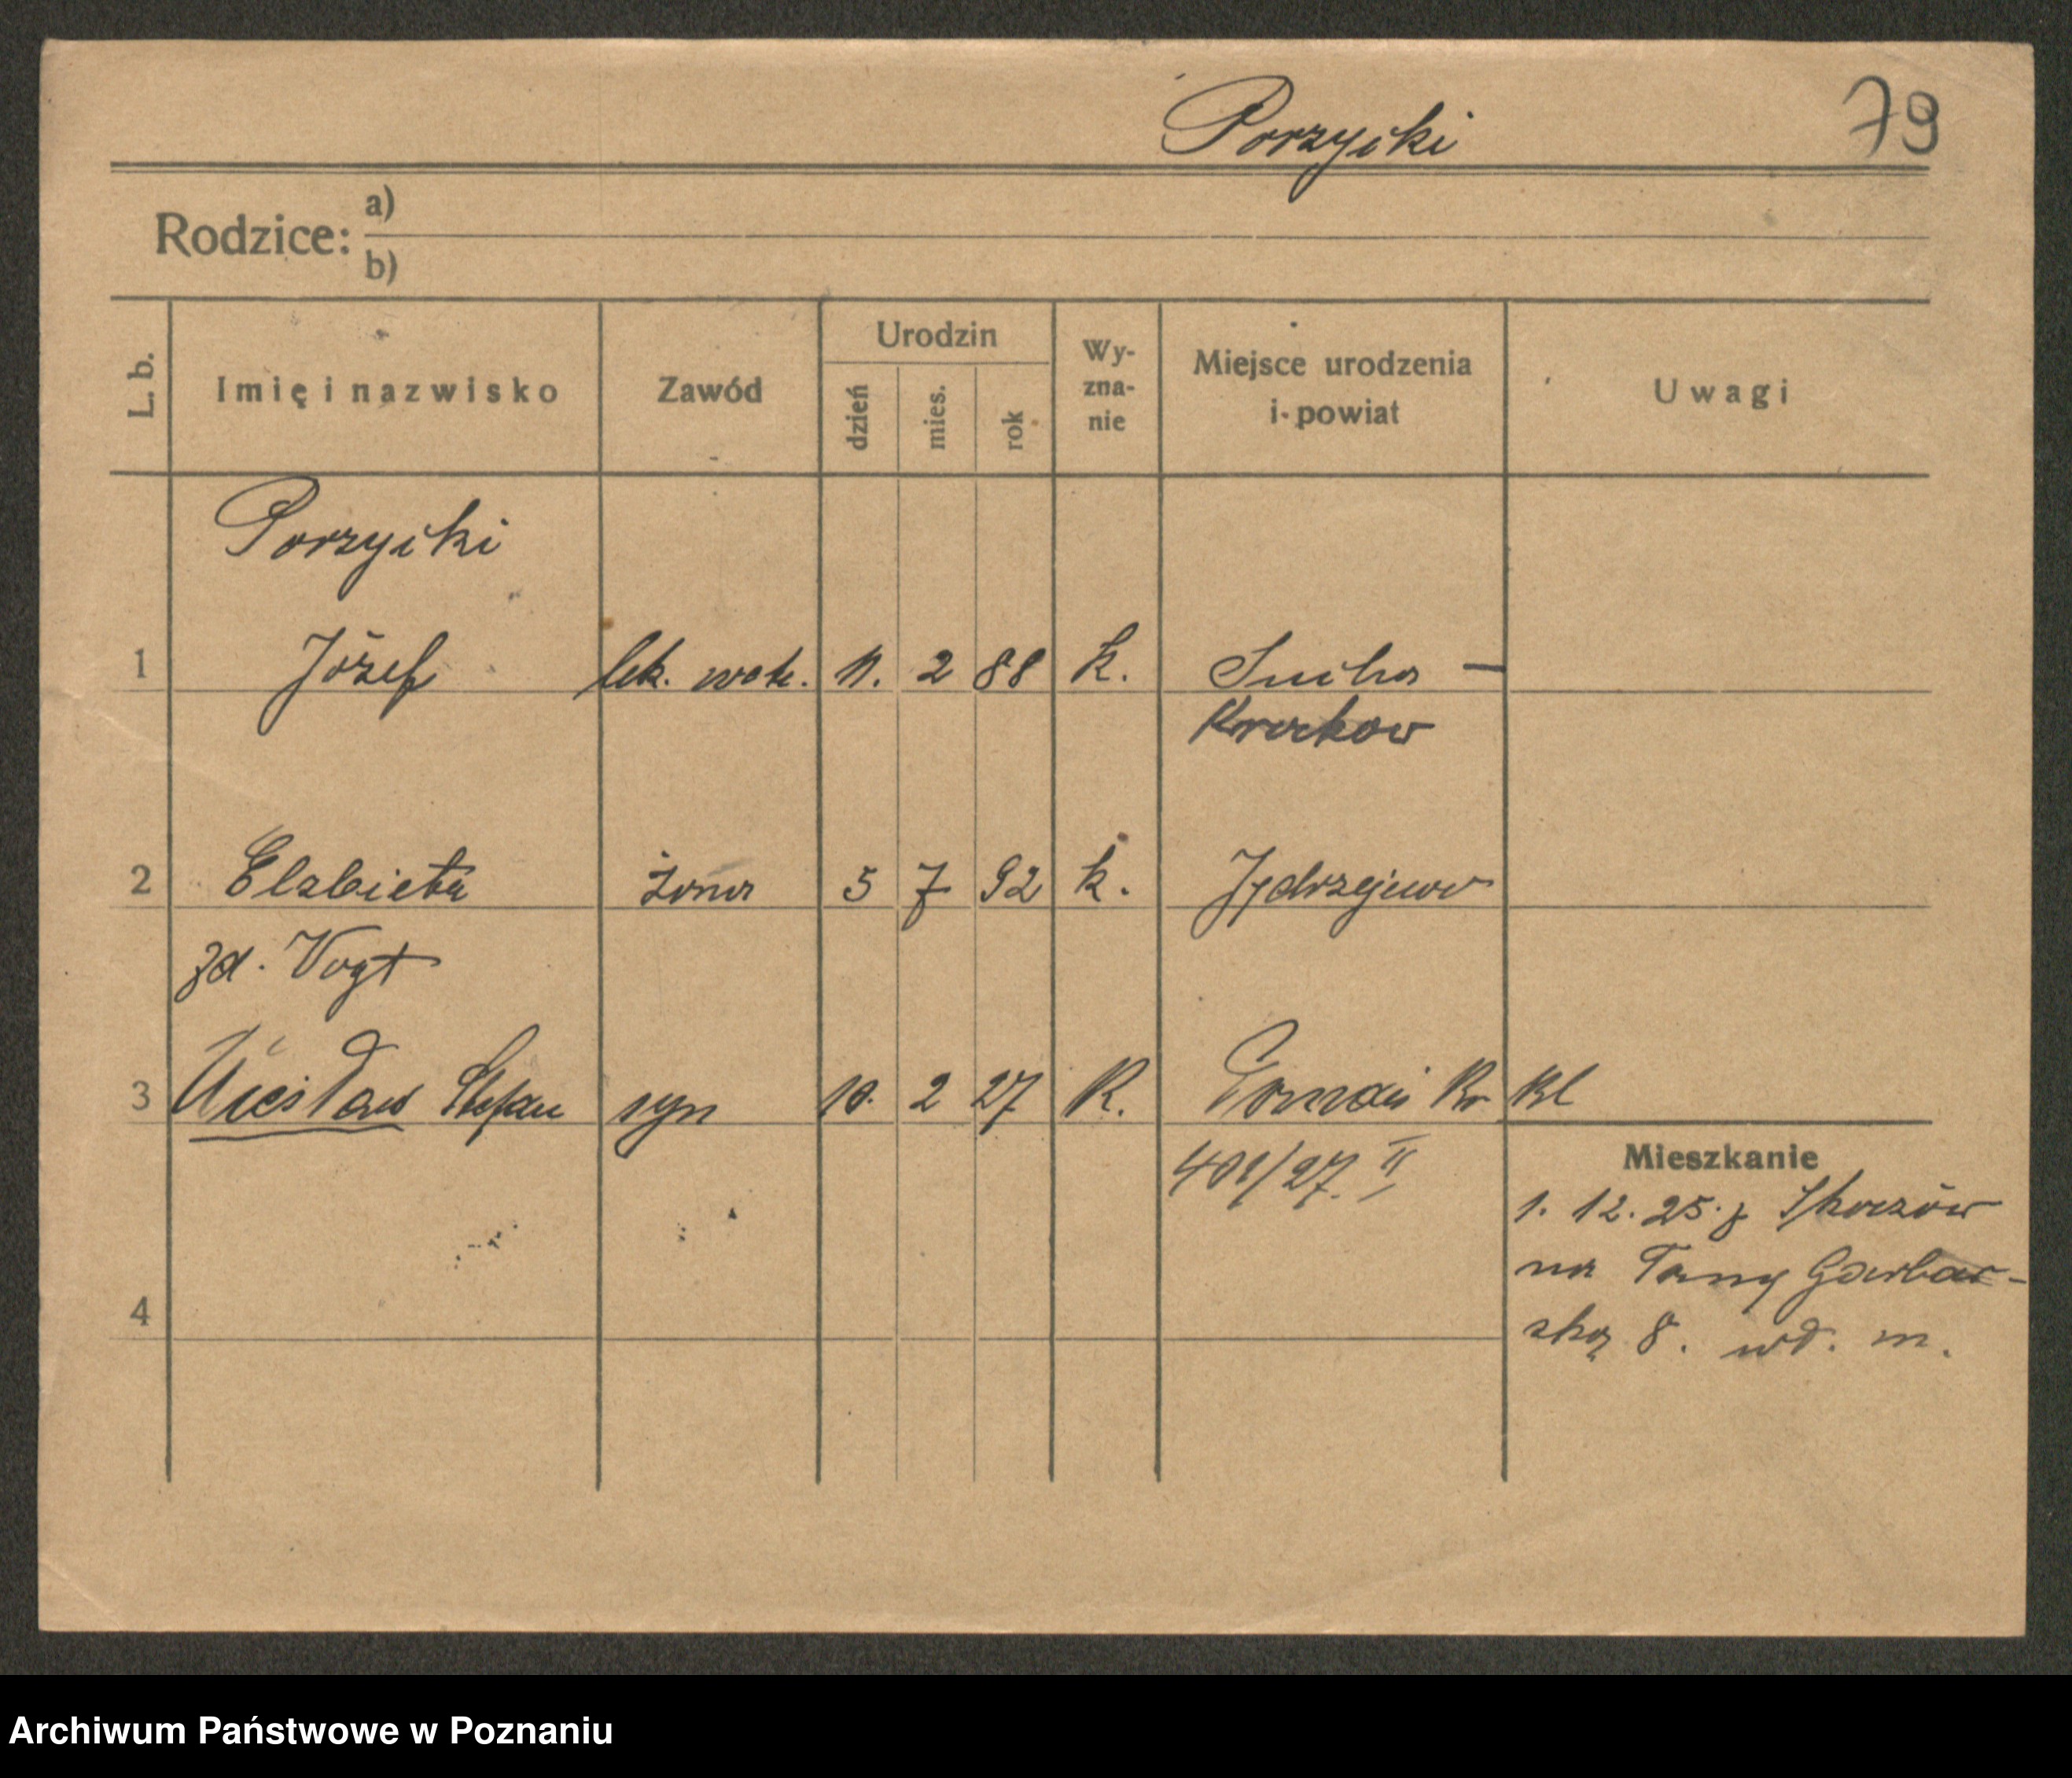 Porzycki 79
Rodzice: a)
b)
L. b. Imię i nazwisko Zawód Urodzin dzień mies. rok Wy-zna-nie Miejsce urodzenia i powiat Uwagi
Porzycki
1 Józef lek. wet. 11. 2 88 k. Sucha —
Krakow
2 Elzbieta żona 5 7 92 k. Jędrzejewo
zd. Vogt
3 Wiesław Stefan syn 10. 2 27 k. Poznań
401/27. II
Mieszkanie
1. 12. 25. z
na Garbar-
4 ską 8. wł. m.
Archiwum Państwowe w Poznaniu